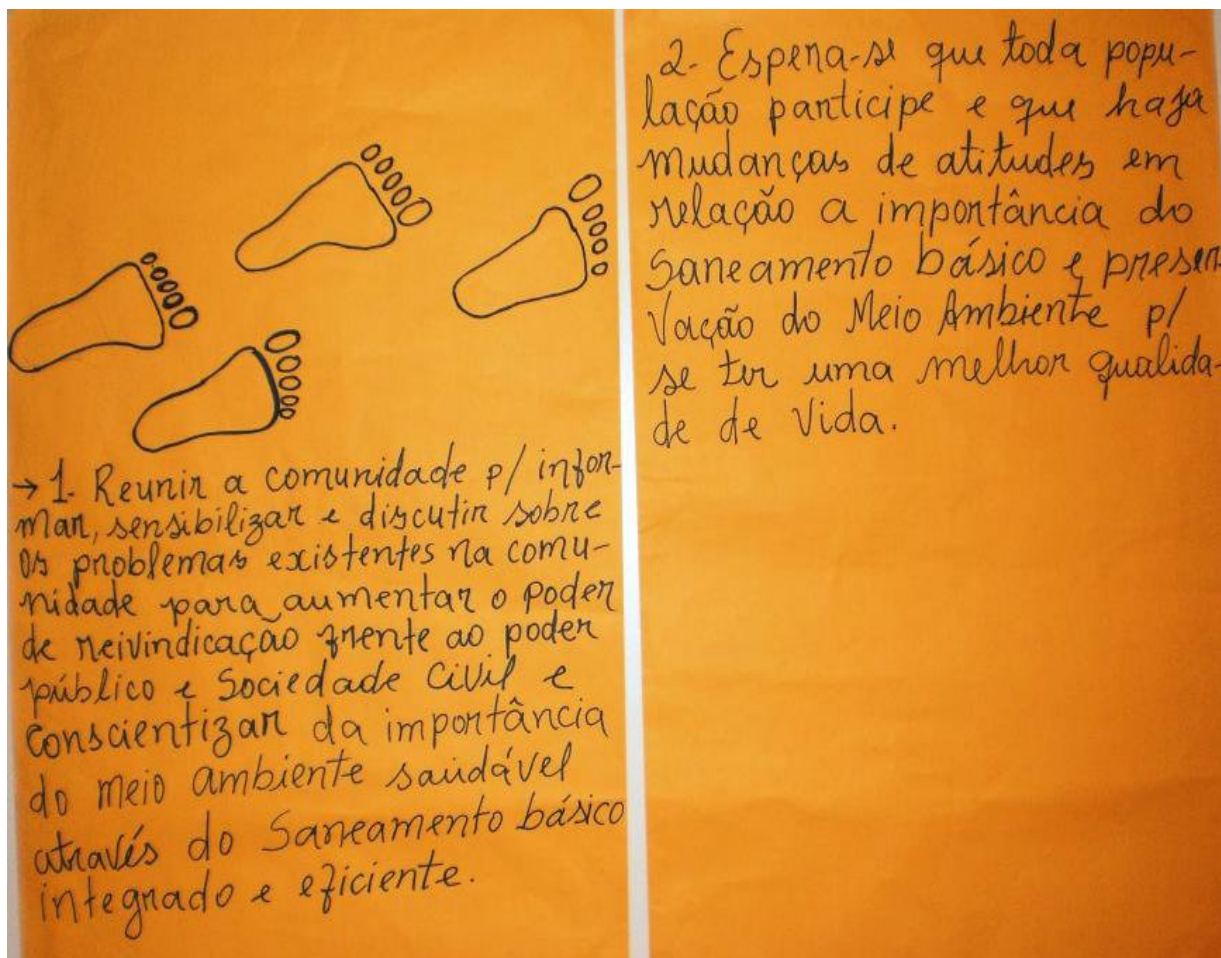 → 1. Reunir a comunidade p/ infor-
mar, sensibilizar e discutir sobre
os problemas existentes na comu-
nidade para aumentar o poder
de reivindicação frente ao poder
público e Sociedade Civil e
conscientizar da importância
do meio ambiente saudável
através do Saneamento básico
integrado e eficiente.
2- Espera-se que toda popu-
lação participe e que haja
mudanças de atitudes em
relação a importância do
Saneamento básico e preser
vação do Meio Ambiente p/
se ter uma melhor qualida-
de de Vida.